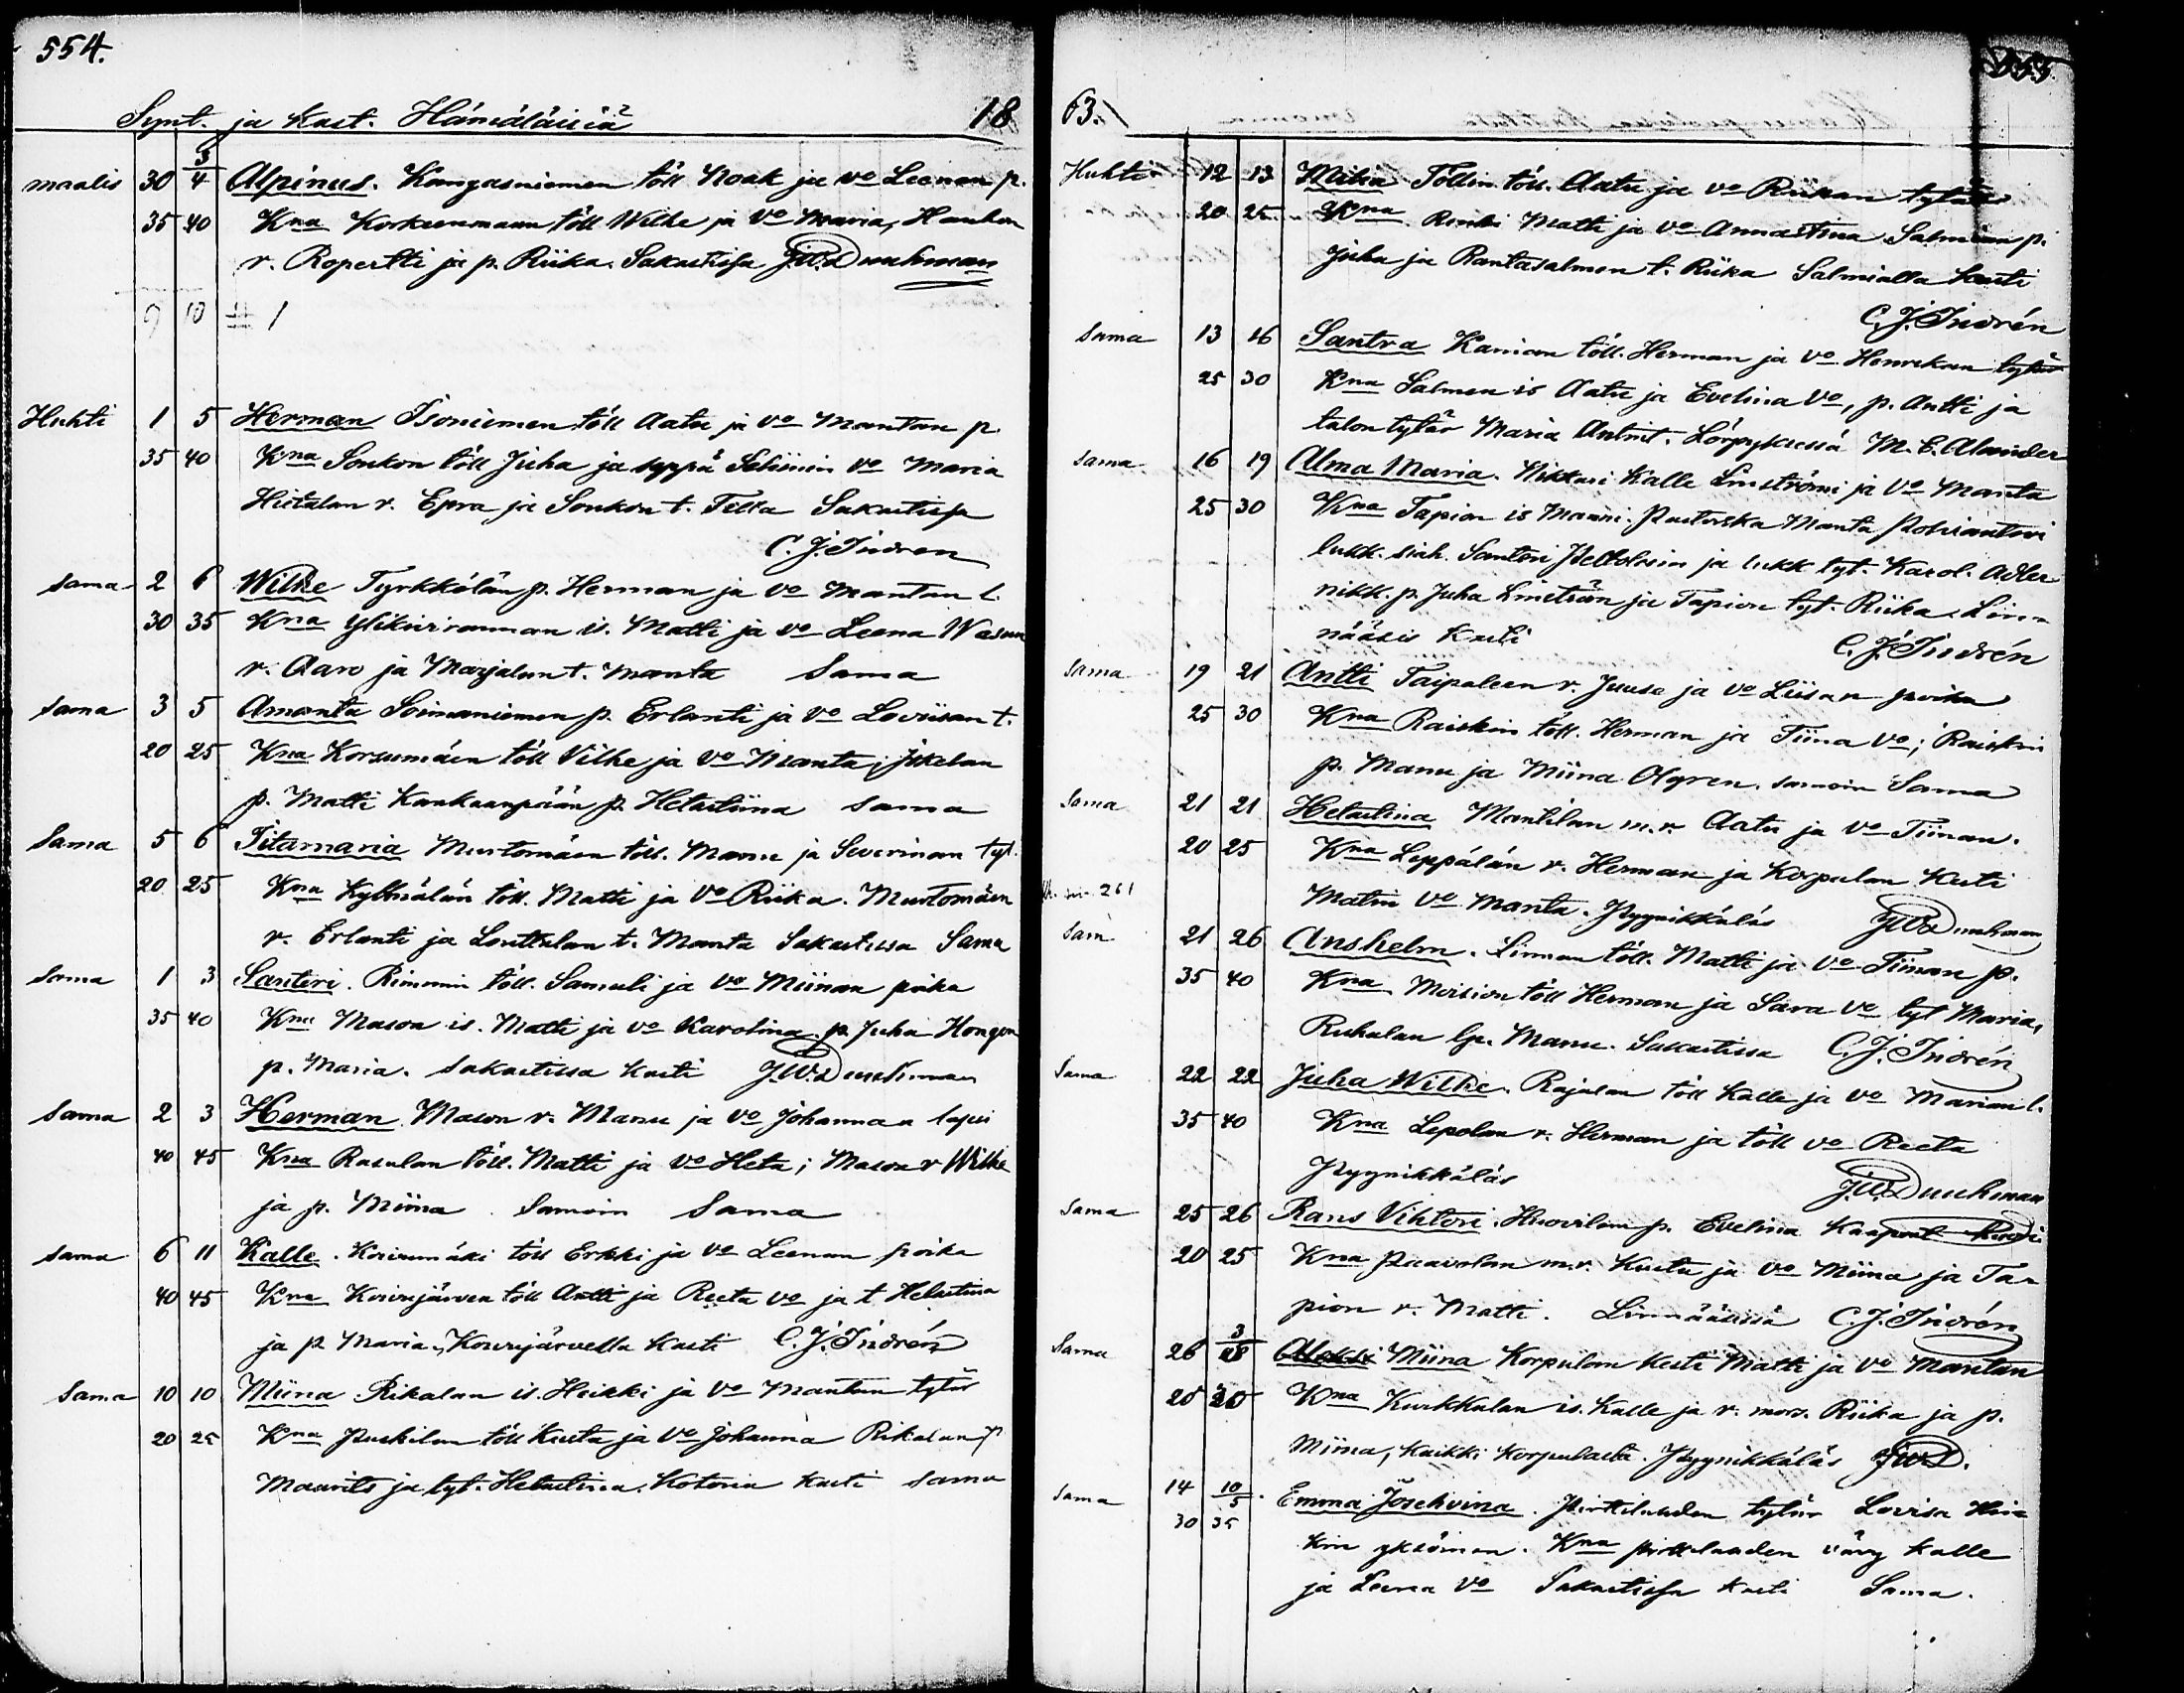 554.
Synt. ja Kast. Hämäläisiä 18
maalis 30 3/4 Alpinus. Kangasniemen töll Noak ja vo Leenan p.
35 40 Kna Korkeenmaan töll Wilhe ja vo Maria, Haukon
r. Ropertti ja p. Riika. Sakastissa J.W.Duuhman
9 10 # 1
Huhti 1 5 Herman Isoniemen töll Aatu ja vo Mantan p.
35 40 Kna Soukon töll Juha ja seppä Seliinin vo Maria
Hietalan r. Epra ja Soukon t. Tilta Sakastissa
C. J. Indren
sama 2 6 Wilhe Tyrkkölän p. Herman ja vo Mantan l.
30 35 Kna Ylikuivanman is. Matti ja vo Leena
r. Aaro ja Marjalan t. Manta Sama
sama 3 5 Amanta Soinaniemen p. Erlanti ja vo Loviisan t.
20 25 Kna Korsumäen töll Vilhe ja vo Manta; Jikelan
p. Matti Kankaanpään p. Hetastiina sama
Sama 5 6 Iitamaria Murtomäen töll. Manu ja Severinan tyt.
20 25 Kna Kylänmälän töll. Matti ja vo Riika. Murtomäen
r. Erlanti ja Louttulan t. Manta Sakastissa Sama
Sama 1 3 Santeri. Rimmin töll. Samuli ja vo Miinan poika
35 40 Kna Mason is. Matti ja vo Karolina p. Juha Hongon
p. Maria. Sakastissa kasti J.W.Duuhman
Sama 2 3 Herman Mason r. Manu ja vo Johannan lapsi
40 45 Kna Rasulan töll. Matti ja vo Heta; Mason r Wilhe
ja p. Miina. Samoin Sama
sama 6 11 Kalle. Koivumäki töll Erkki ja vo Leenan poika
40 45 Kna Koivujärven töll Antti ja Reeta vo ja t Hetastina
ja p Maria, Kouvujärvellä kasti C. J. Indrén
Sama 10 10 Miina Rikalan is. Heikki ja vo Mantan tytär
20 25 Kna Puskilan töll Kusta ja vo Johanna Rikalan p
Maurits ja tyt. Hetastina. Kotona kasti sama
63. 555.
Huhti 12 13 Milia Töllin töll. Aatu ja vo Riikan tytär
20 25 Kna Renki Matti ja vo Annastina Salmian p.
Juha ja Rantasalmen t. Riika Salmialla kasti
C. J. Indrén
Sama 13 16 Santra Kanian töll. Herman ja vo Henrikan tytär
25 30 Kna Salmen is Aatu ja Evelina vo, p. Antti ja
talon tytär Maria Antint. Lörpykässä M. E. Alander
sama 16 19 Alma Maria. Nikkari Kalle Linströmi ja vo Manta
25 30 Kna Tapion is Manni. Pastorska Manta Polviantteri
lukk. siah. Santeri Peltolasin ja lukk tyt. Karol. Adler
nikk. p. Juha Linström ja Tapion tyt. Riika. Lin-
nääsis kasti C. J. Indrén
Sama 19 21 Antti Taipaleen r. Juuse ja vo Liisan poika
25 30 Kna Raiskin töll. Herman ja Tiina vo; Raiskin
p. Manu ja Miina Olgren. samoin Sama
Sama 21 21 Hetastina Mantilan m.r. Aatu ja vo Tiinan.
20 25 Kna Leppälän r. Herman ja Korpulan Kusti
Matin vo Manta. Pyynikkäläs J.W.Duuhman
261
Sam 21 26 Anshelm. Linnan töll. Matti ja vo Tiinan p.
35 40 Kna Moision töll Herman ja Sara vo tyt Maria,
Ruhalan lp. Manu. Sakastissa C. J. Indrén
Sama 22 22 Juha Wilhe. Rajalan töll Kalle ja vo Marian l.
35 40 Kna Lepolan r. Herman ja töll vo Reeta
Pyynikkäläs J.W.Duuhman
Sama 25 26 Rans Vihtori Huovilan p. Evelina
20 25 Kna Paavolan m.r. Kusta ja vo Miina ja Ta-
pion r. Matti. Linnäässä C. J. Indrén
Sama 26 3/ Aleksi Miina Korpulan Kusti Matti ja vo Mantan
Kna Kurkkalan is. Kalle ja r. mors. Riika ja p.
Miina, kaikki Korpulasta. Pyynikkäläs J.W.D.
Sama 14 10/5 Emma Joschvina. Pirttilauden tytär Lovisa Hei-
30 35 kin yksöinen. Kna pirttilauden vävy Kalle
ja Leena vo Sakastissa kasti Sama.